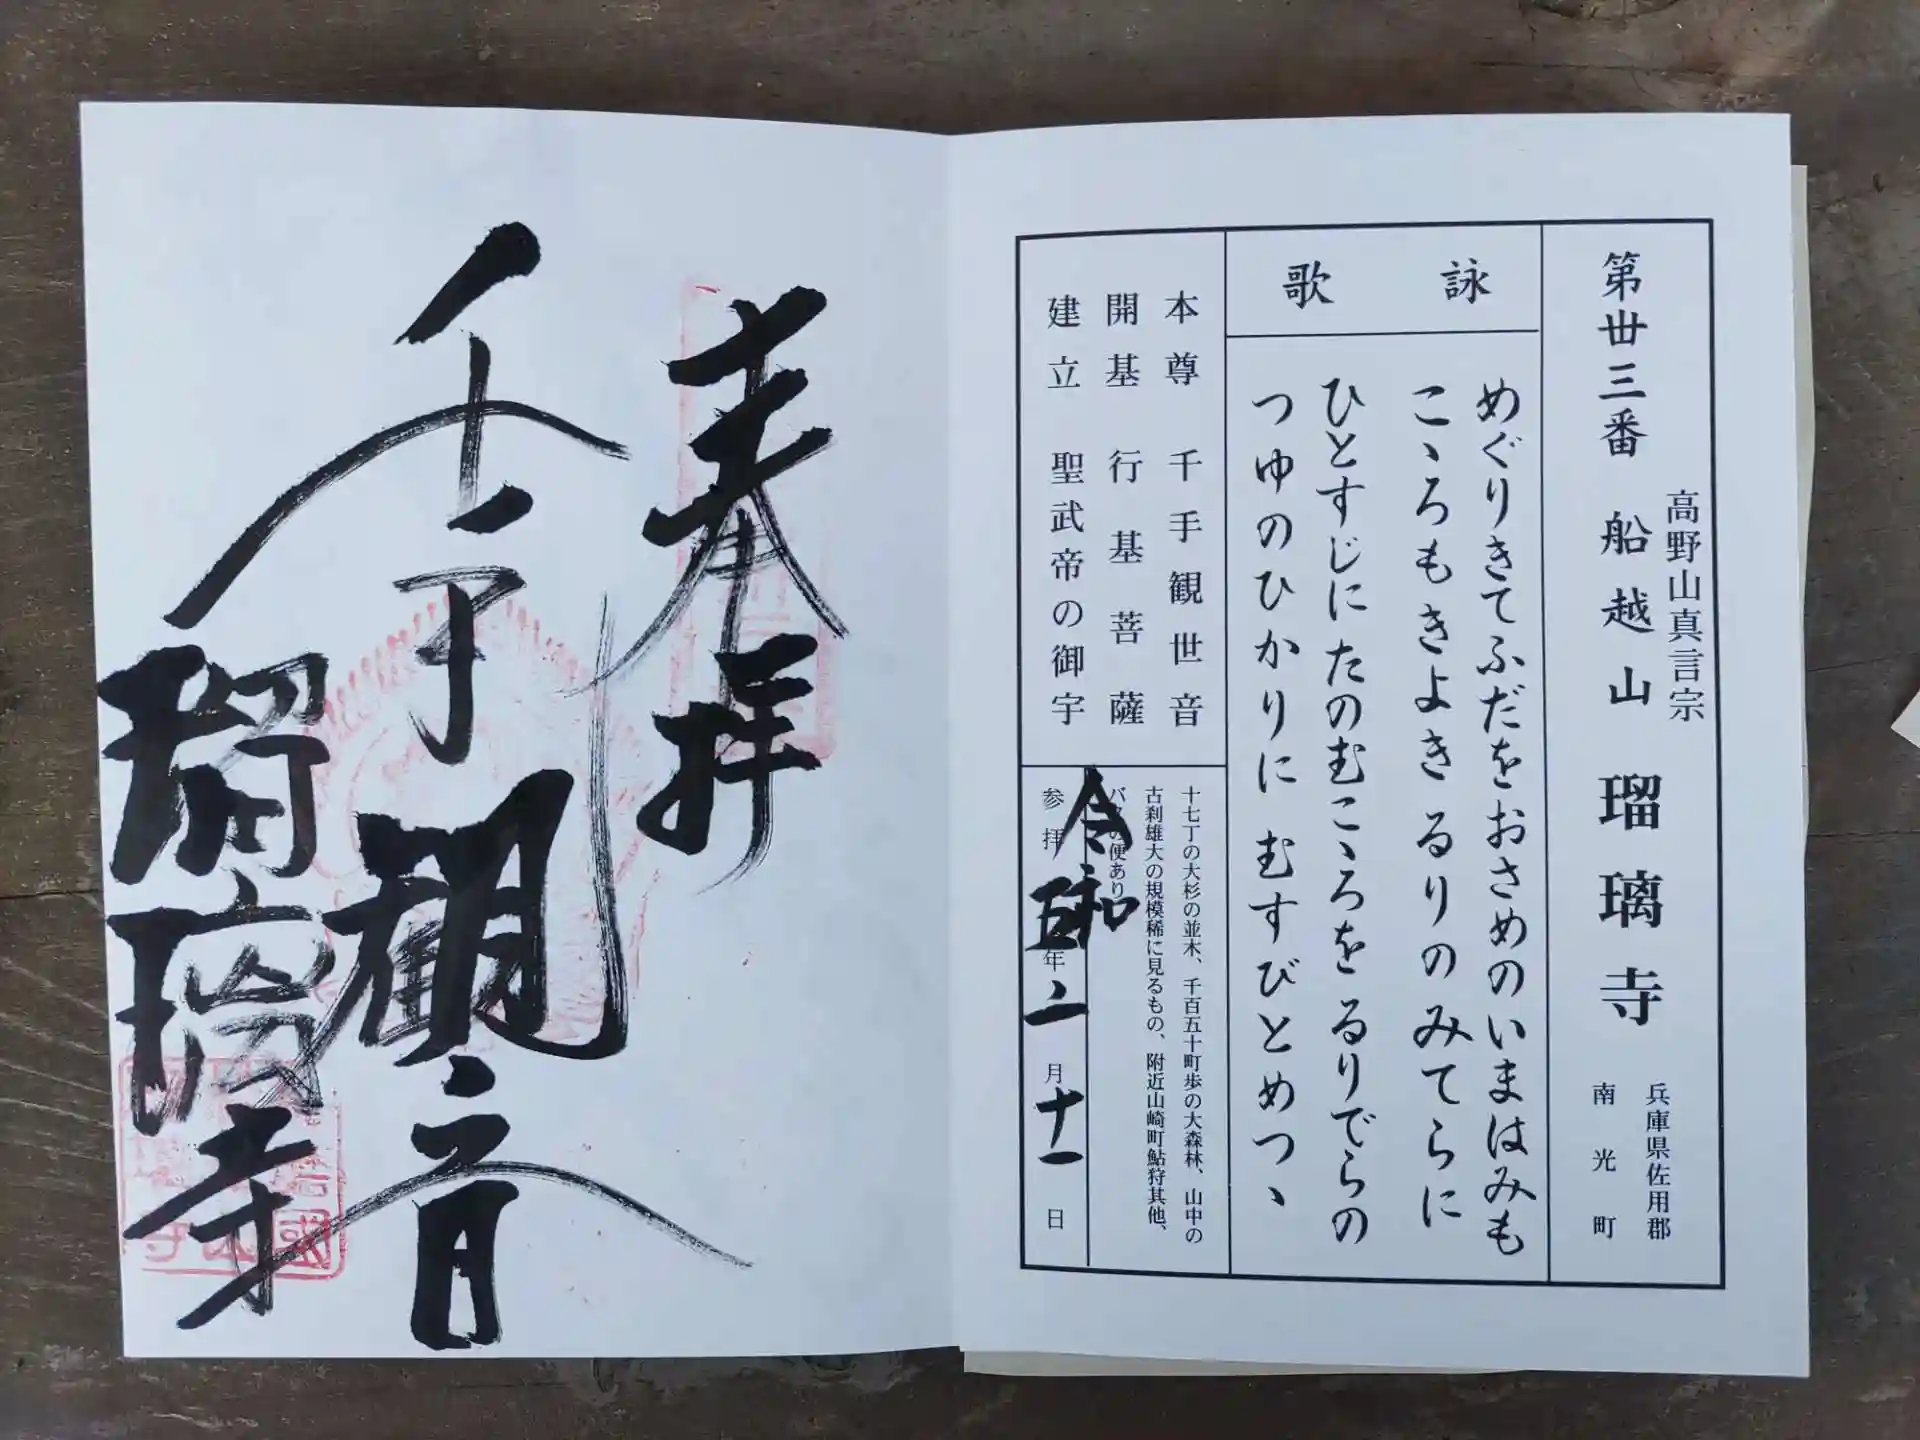 第丗三番 船越山 瑠璃寺
高野山真言宗
兵庫県佐用郡
南光町
詠歌
めぐりきてふだをおさめのいまはみも
こゝろもきよきるりのみてらに
ひとすじにたのむこゝろをるりでらの
つゆのひかりにむすびとめつゝ
本尊 千手観世音
開基 行基菩薩
建立 聖武帝の御宇
十七丁の大杉の並木、千百五十町歩の大森林、山中の
古刹雄大の規模稀に見るもの、附近山崎町鮎狩其他、
便あり
参拝 令和五年二月十一日
奉拝
千手観音
瑠璃寺